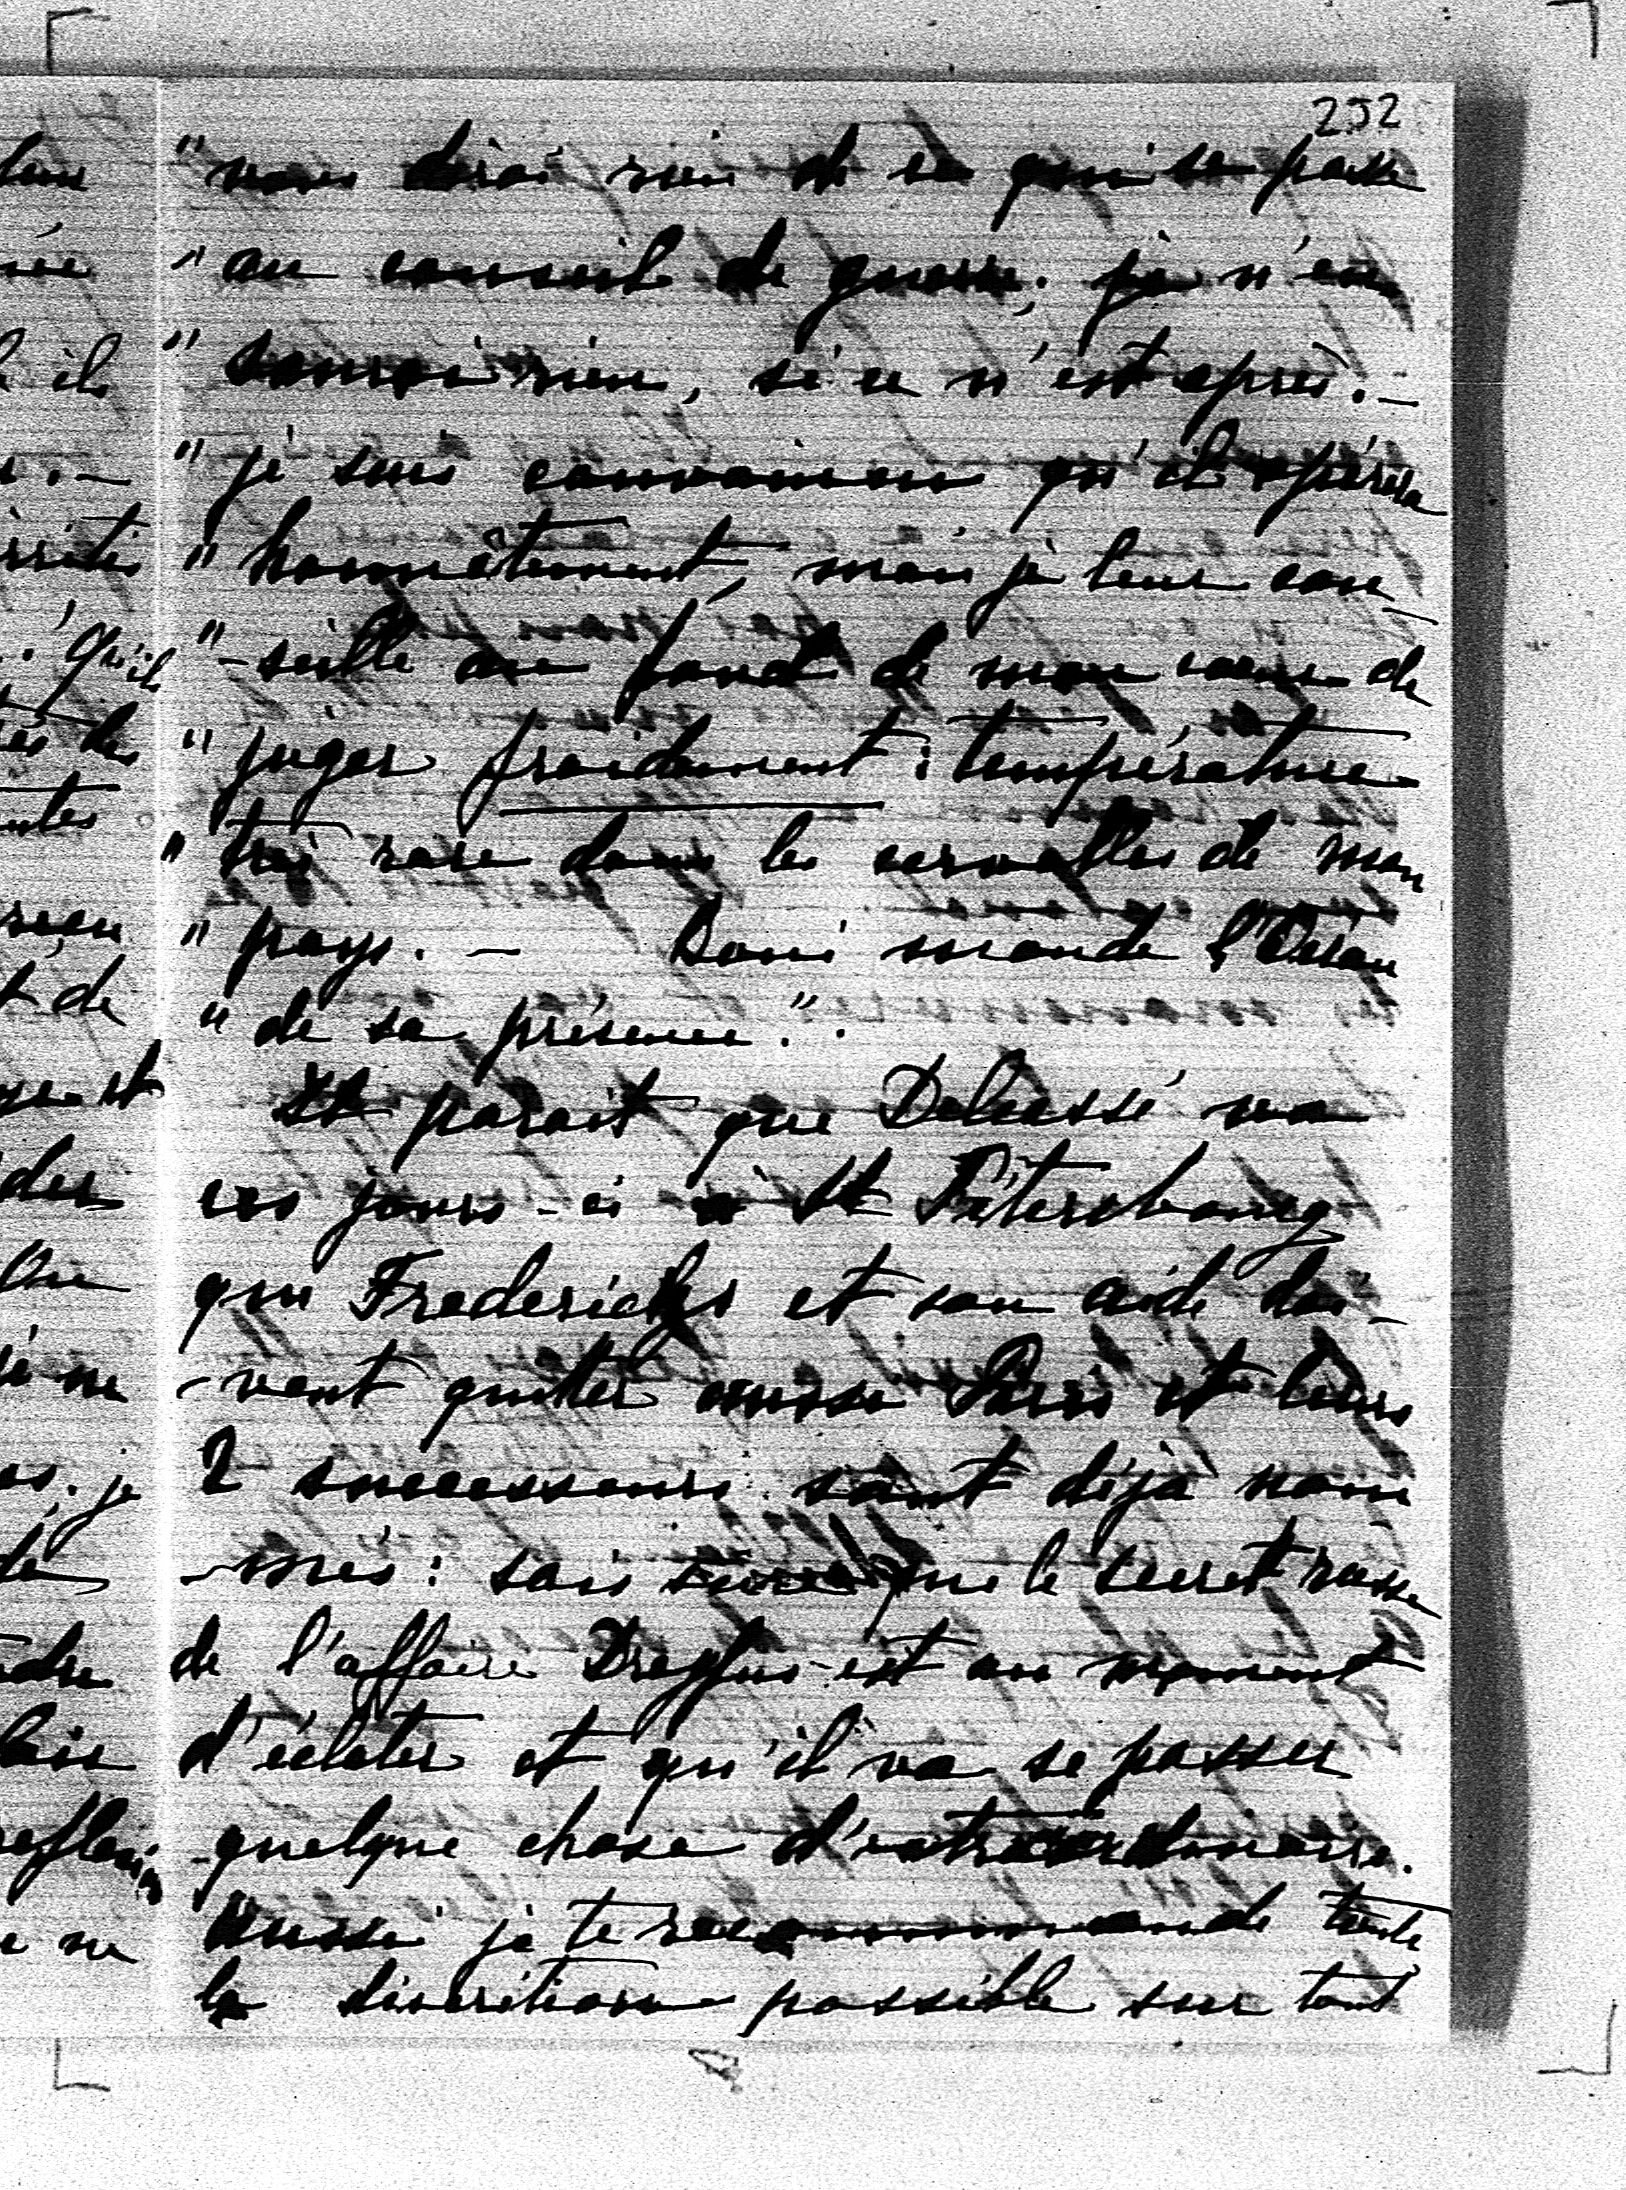 252
" vous dirai rien de ce qui se passe
" au conseil de guerre; je n'en
" saurai rien, si ce n'est après. —
" je suis convaincu qu'il opérera
" honnêtement, mais je leur con
" -seille au fond de mon cœur de
" juger froidement : température
" très rare dans les cervelles de mon
" pays. — inonde
" de sa présence.".
Il parait que Delcassé va
ces jours-ci à St Pétersbourg
que Fredericks et son aide doi-
-vent quitter aussi Paris et leurs
2 successeurs sont déjà nom
-més : sois que le secret russe
de l'affaire Dreyfus est au moment
d'éclater et qu'il va se passer
quelque chose d'extraordinaire.
Aussi je te recommande toute
la discrétion possible sur tout